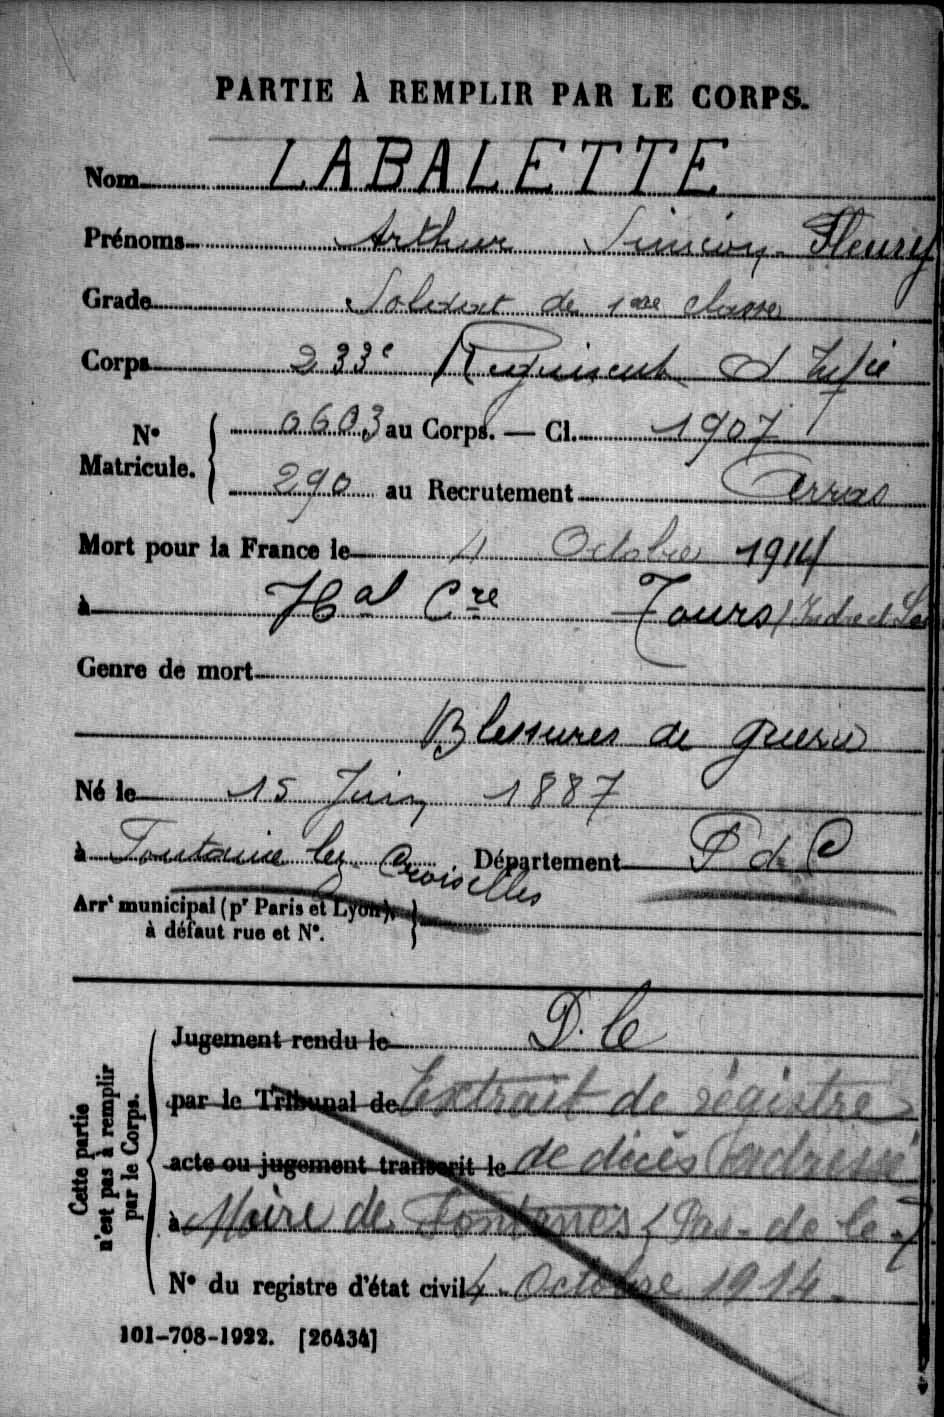 PARTIE À REMPLIR PAR LE CORPS.
Nom LABALETTE
Prénoms Arthur Siméon Fleury
Grade Soldat de 1ère classe
Corps 233e Régiment d'Infie
No Matricule. 0603 au Corps. — Cl. 1907
290 au Recrutement Arras
Mort pour la France le 4 Octobre 1914
à Hal Cre Tours (Indre et
Genre de mort
Blessures de guerre
Né le 15 Juin 1887
à Fontaine les Croiselles Département P d C
Arrt municipal (pr Paris et Lyon),
à défaut rue et No.
Cette partie n'est pas à remplir par le Corps.
Jugement rendu le D. le
par le Tribunal de Extrait de régistre
acte ou jugement transcrit le de décès adressé
à Maire de (Pas-de
No du registre d'état civil 4 Octobre 1914.
101-708-1922. [26434]